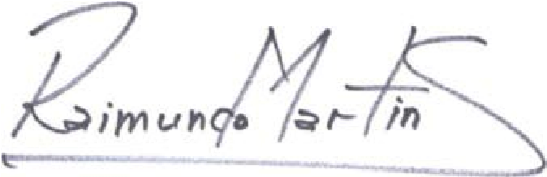 Raimundo Martins